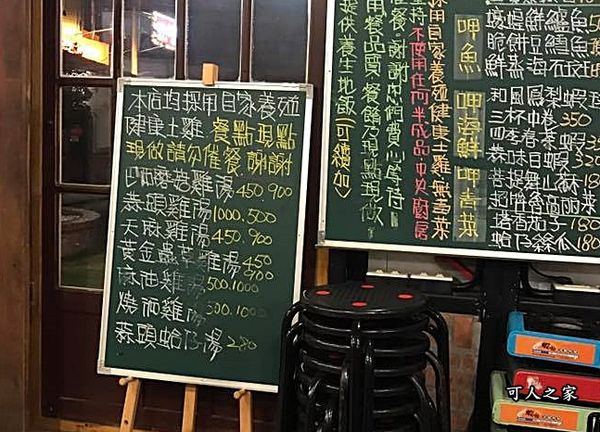 本店均採用自家養殖
健康土雞 餐點現點
現做請勿催餐,謝謝
巴西蘑菇雞湯 450.900
蒜頭雞湯 1000.500
天麻雞湯 450.900
黃金蟲草雞湯 450 900
麻油雞湯 500.1000
燒酒雞湯 500.1000
蒜頭蛤仔湯 280
採用自家養殖健康土雞、無毒菜
堅持不使用任何半成品、中央廚房
催餐、謝謝您們費心等待
餐品質、餐點乃現點現做
提供養生地飯(可續加)
呷魚 呷海鮮 呷青菜
和風鳳梨蝦球
三杯中卷 350
四季春茶蝦 320
蒜味白蝦 320
菩提舞山麻 180
塔香茄子 180
蛤仔絲瓜 180
可人之家